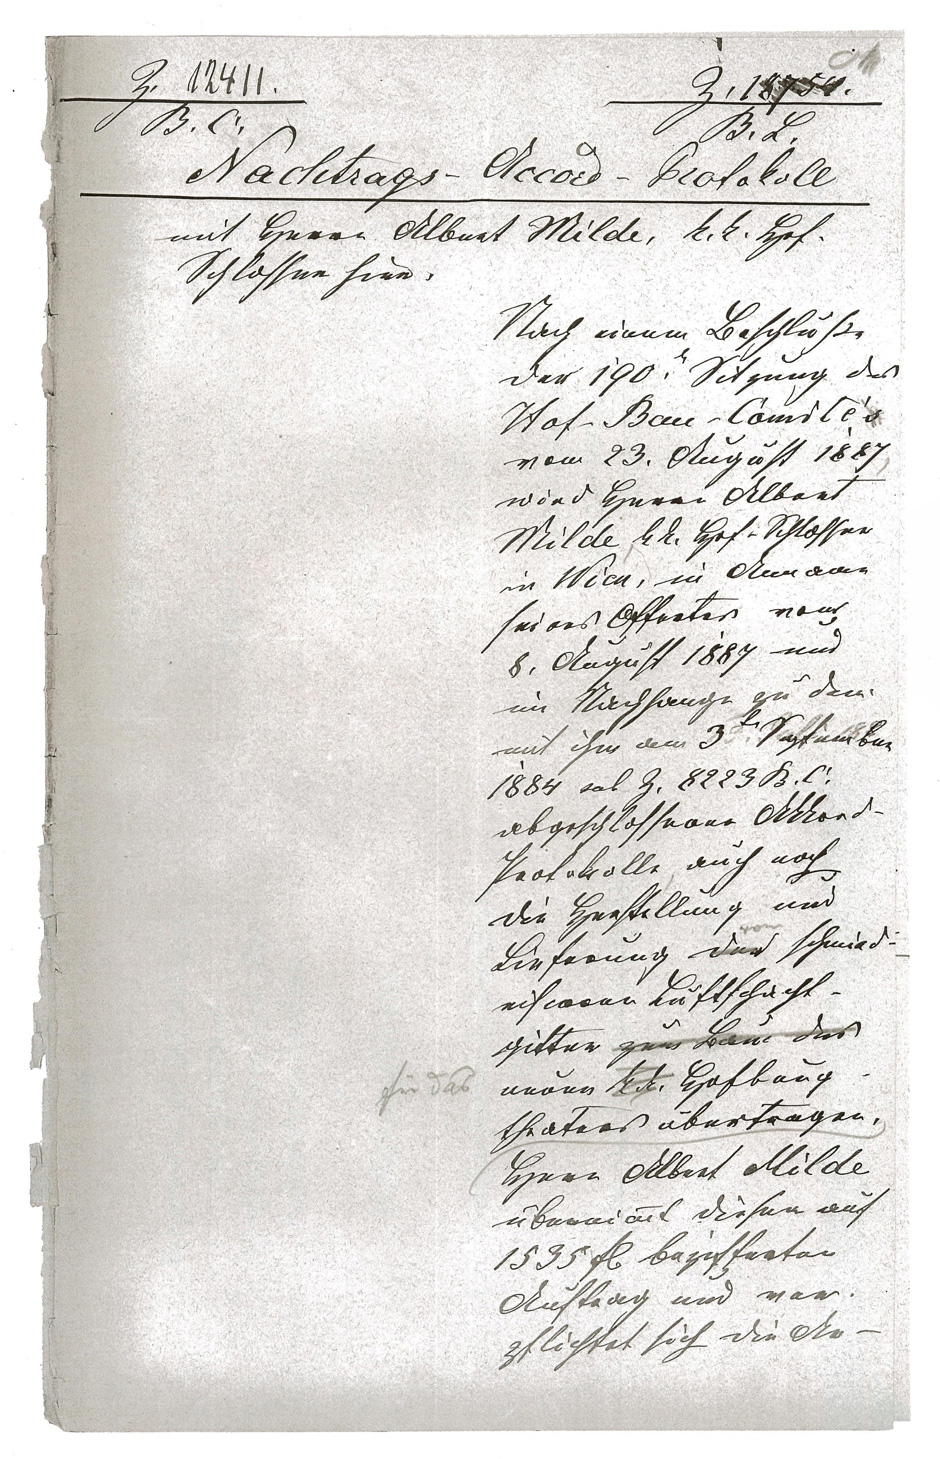 Z. 12411.
B. C.
Z. 18754.
B. L.
Nachtrags - Accord - Protokoll
mit Herrn Albert Milde, k. k. Hof-
Schlosser hier.
Nach einem Beschluße
der 190. Sitzung des
Hof-Bau-Comité's
vom 23. August 1887,
wird Herrn Albert
Milde, k. k. Hof-Schlosser
in Wien, in Annahme
seines Offertes vom
8. August 1887 und
im Nachhange zu dem
mit ihm am 3ten September
1884 sub Z. 8223 B. C.
abgeschlossenen Akkord-
Protokolle, auch noch
die Herstellung und
von
Lieferung der schmied-
eisernen Luftschacht-
gitter zum Baue des
für das
neuen k. k. Hofburg-
theaters übertragen.
Herr Albert Milde
übernimmt diesen auf
1535 fl bezifferten
Auftrag und ver-
pflichtet sich die An-